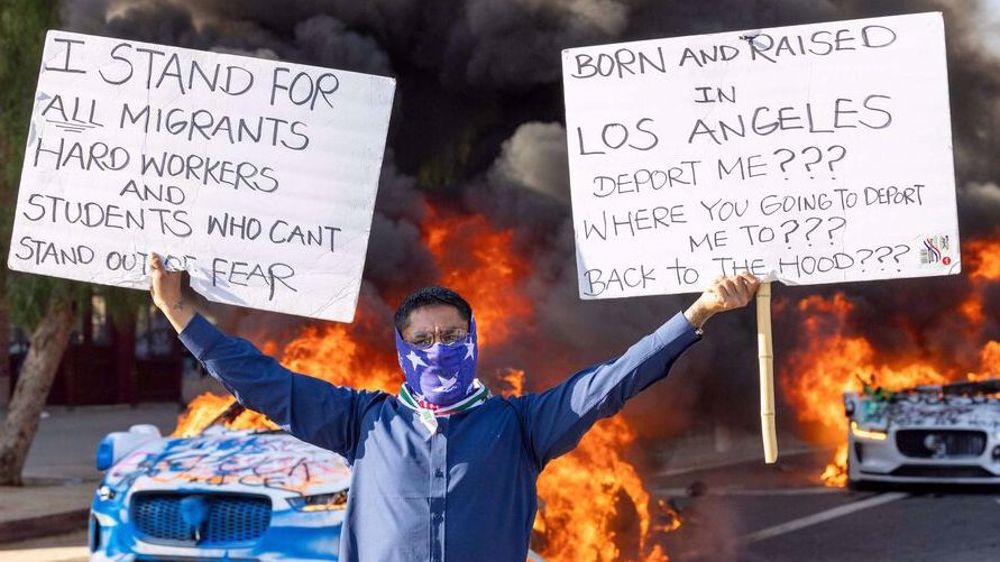 I STAND FOR
ALL MIGRANTS
HARD WORKERS
AND
STUDENTS WHO CANT
STAND OUT OF FEAR
BORN AND RAISED
IN
LOS ANGELES
DEPORT ME???
WHERE YOU GOING TO DEPORT
ME TO???
BACK TO THE HOOD???